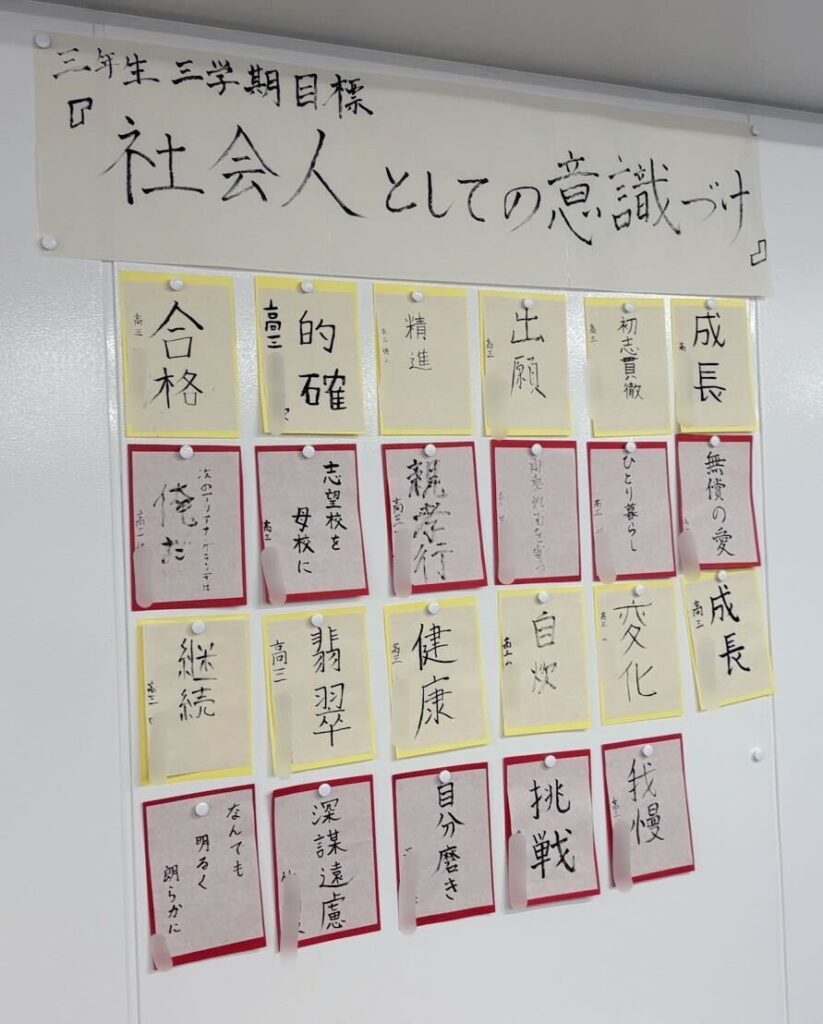 三年生 三学期目標
『社会人としての意識づけ』
合格
高三
的確
高三
精進
出願
高三
初志貫徹
高三
成長
次のアリアナグランデは
俺だ
高三
志望校を
母校に
高三
親孝行
高三
雨垂れ石を穿つ
ひとり暮らし
高三
無償の愛
継続
高三
翡翠
高三
健康
高三
自炊
高三
変化
高三
成長
高三
なんでも
明るく
朗らかに
深謀遠慮
自分磨き
挑戦
我慢
高三